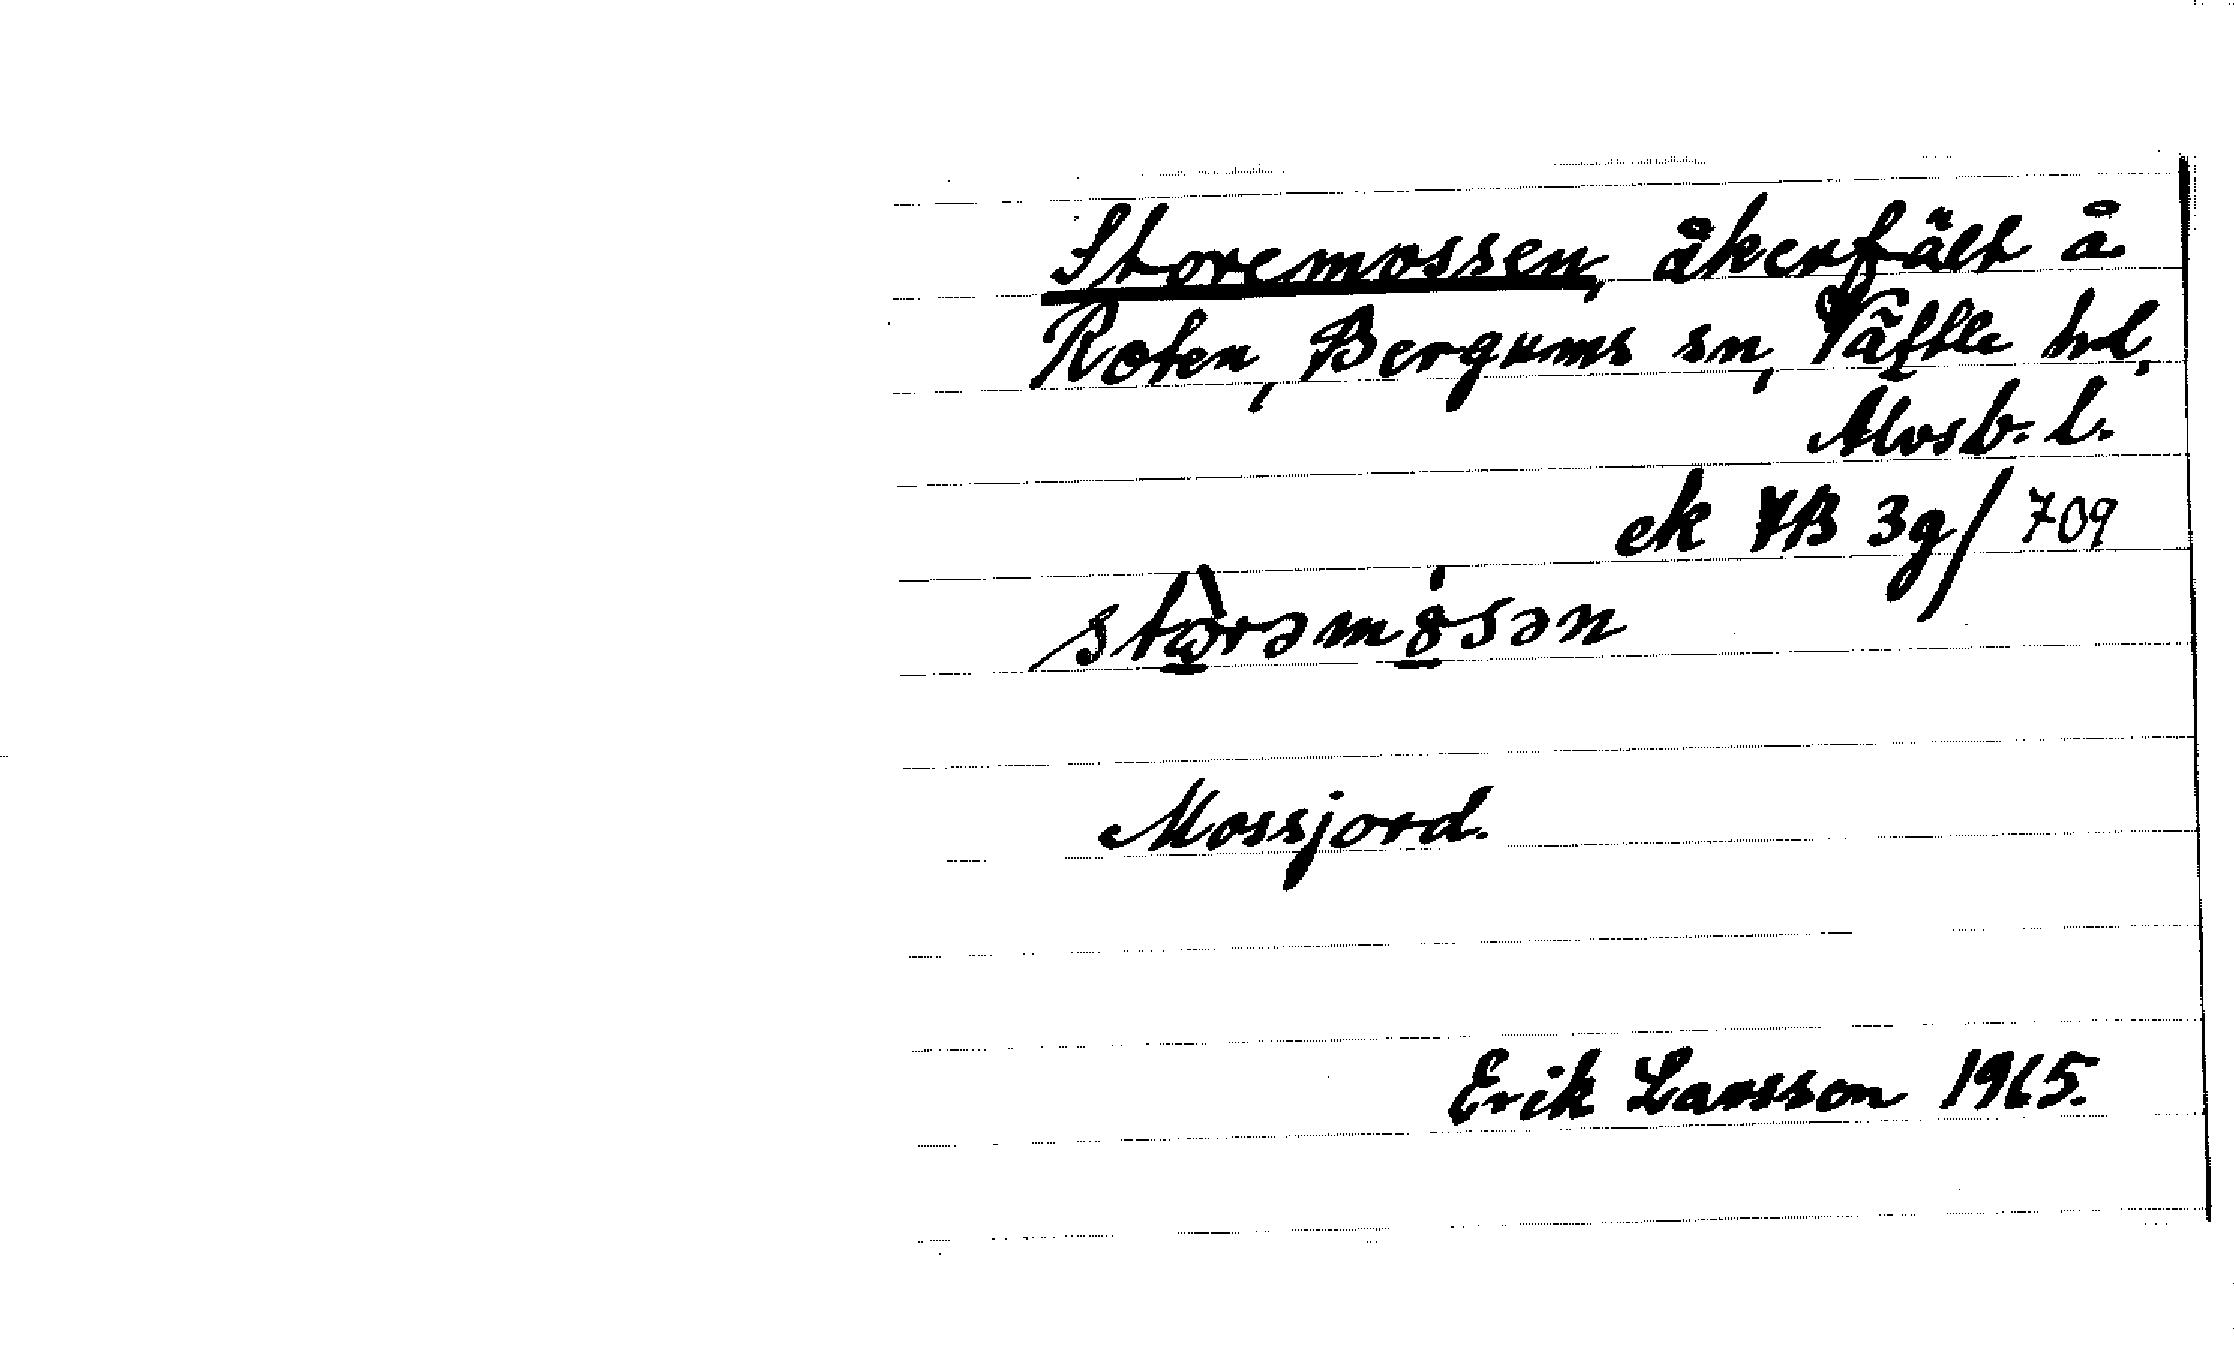 Storemossen, åkerfält å
Roten, Bergums sn, Vättle hd,
Älvsb. l.
ek 7B 3g/709
Mossjord.
Erik Larsson 1965.